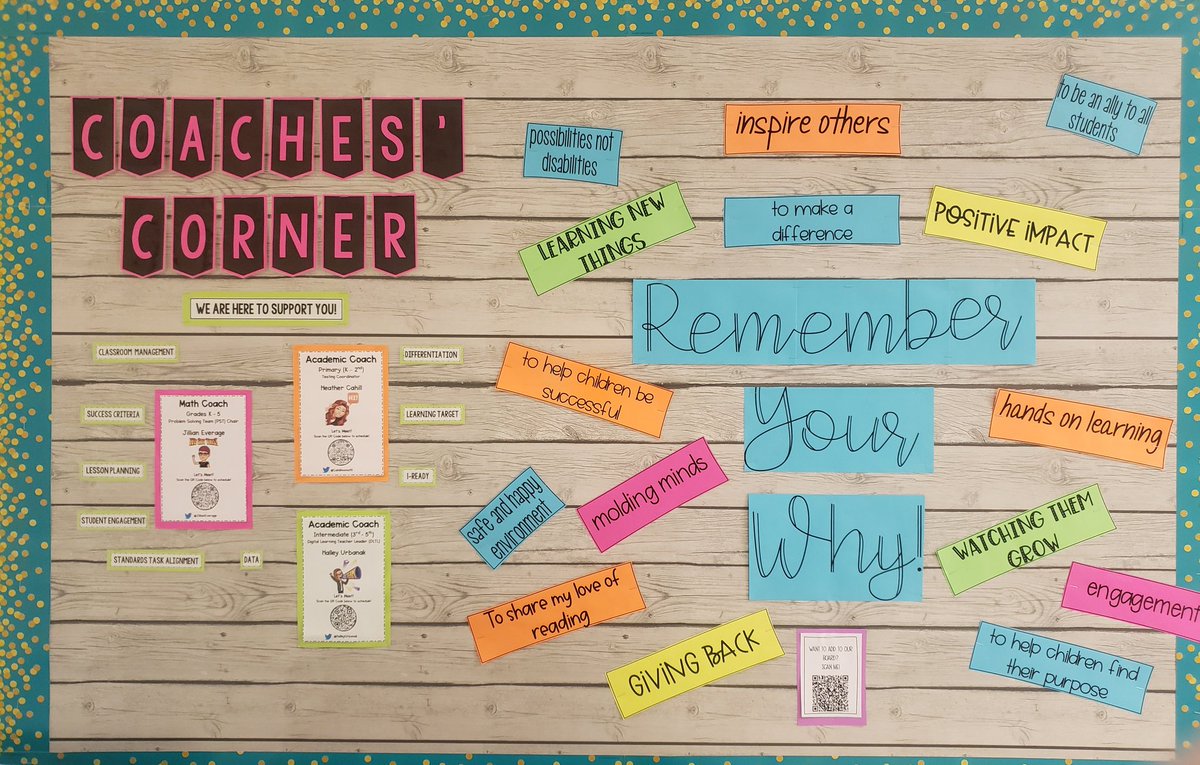 COACHES'
CORNER
WE ARE HERE TO SUPPORT YOU!
CLASSROOM MANAGEMENT
SUCCESS CRITERIA
LESSON PLANNING
STUDENT ENGAGEMENT
STANDARDS TASK ALIGNMENT
DATA
DIFFERENTIATION
LEARNING TARGET
I-READY
Academic Coach
Primary (K - 2nd)
Testing Coordinator
Heather Cahill
Let's Meet!
Scan the QR Code below to schedule!
Math Coach
Grades K - 5
Problem Solving Team (PST) Chair
Jillian Everage
Let's Meet!
Scan the QR Code below to schedule!
Academic Coach
Intermediate (3rd - 5th)
Digital Learning Teacher Leader (DLTL)
Halley Urbanak
Let's Meet!
Scan the QR Code below to schedule!
possibilities not
disabilities
inspire others
to be an ally to all
students
LEARNING NEW
THINGS
to make a
difference
POSITIVE IMPACT
Remember
Your
Why!
to help children be
successful
hands on learning
molding minds
safe and happy
environment
WATCHING THEM
GROW
To share my love of
reading
engagement
GIVING BACK
to help children find
their purpose
WANT TO ADD TO OUR
BOARD?
SCAN ME!